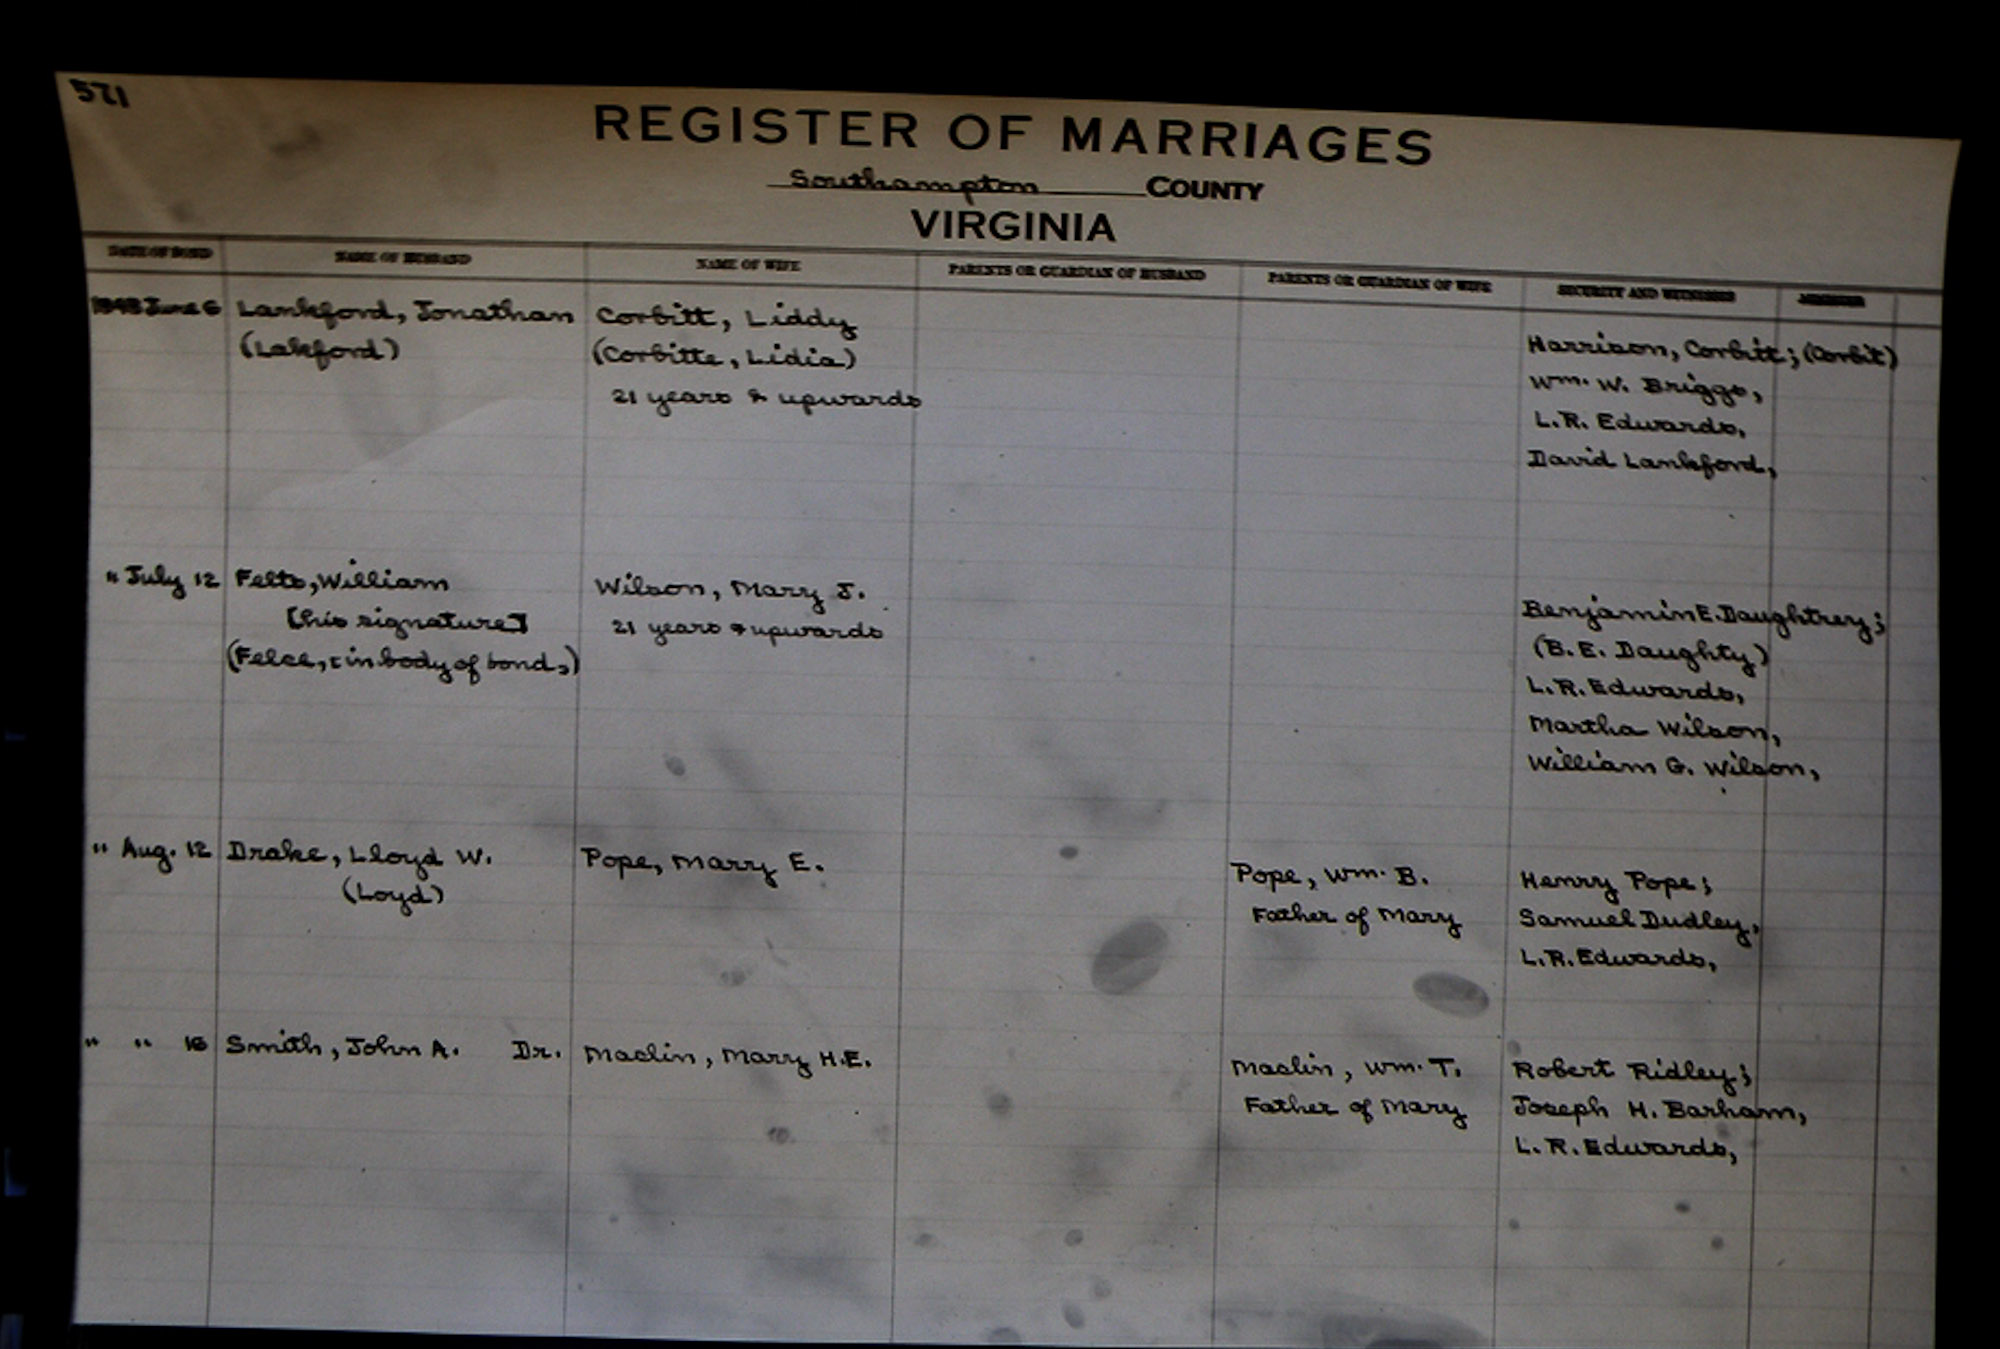 571
REGISTER OF MARRIAGES
Southampton COUNTY
VIRGINIA
DATE OF BOND NAME OF HUSBAND NAME OF WIFE PARENTS OR GUARDIAN OF HUSBAND PARENTS OR GUARDIAN OF WIFE SECURITY AND WITNESSES MINISTER
1848 June 6 Lankford, Jonathan Corbitt, Liddy
(Lakford) (Corbitte, Lidia) Harrison, Corbitt; (Corbit)
21 years & upwards Wm. W. Briggs,
L.R. Edwards,
David Lankford,
" July 12 Felts, William Wilson, Mary J.
[his signature] 21 years & upwards Benjamin E. Daughtrey;
(Felce, in body of bond,) (B.E. Daughty)
L.R. Edwards,
Martha Wilson,
William G. Wilson,
" Aug. 12 Drake, Lloyd W. Pope, Mary E. Pope, Wm. B. Henry Pope;
(Loyd) Father of Mary Samuel Dudley,
L.R. Edwards,
" " 16 Smith, John A. Dr. Maclin, Mary H.E. Maclin, Wm. T. Robert Ridley;
Father of Mary Joseph H. Barham,
L.R. Edwards,